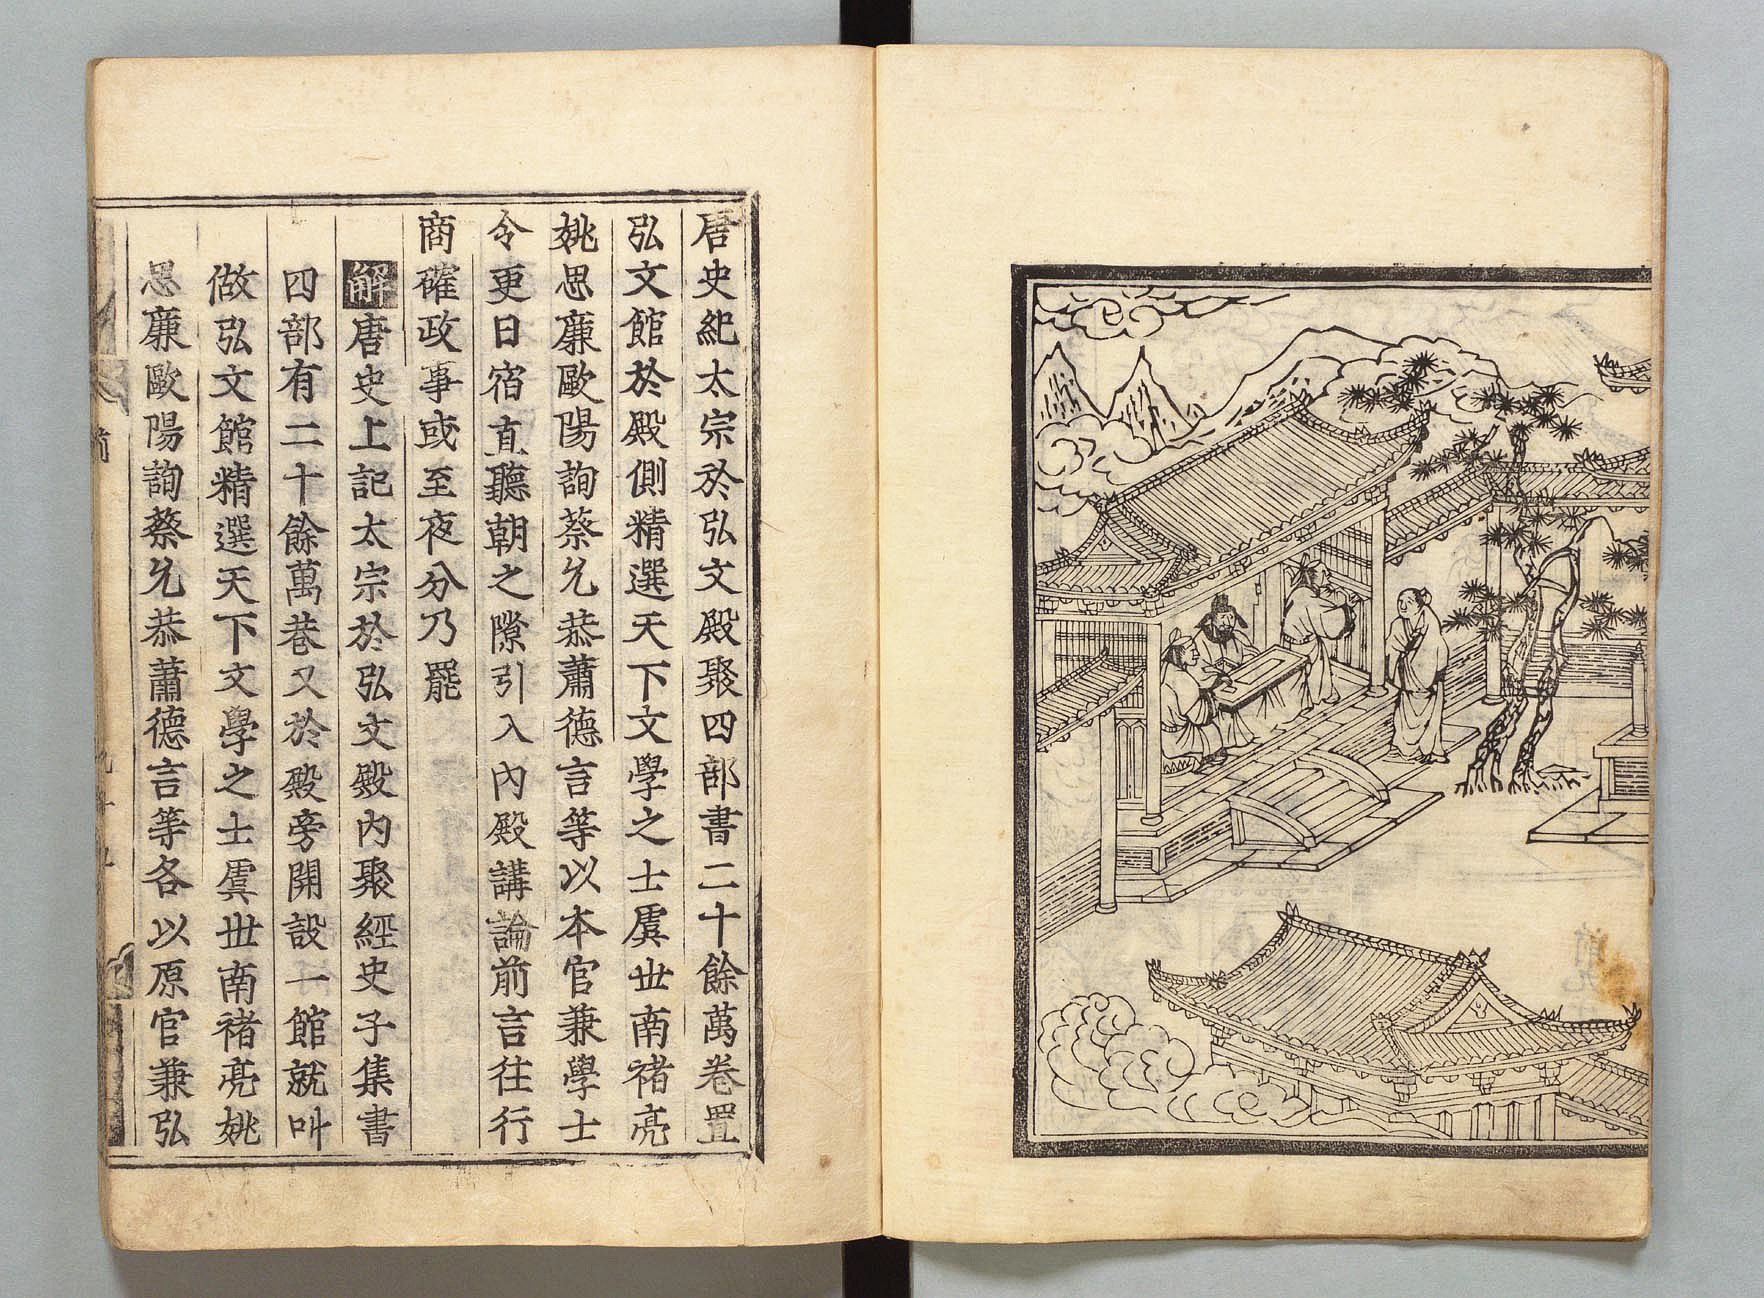 唐史紀太宗於弘文殿聚四部書二十餘萬卷置
弘文館於殿側精選天下文學之士虞世南禇亮
姚思廉歐陽詢蔡允恭蕭德言等以本官兼學士
令更日宿直聽朝之隙引入內殿講論前言往行
商確政事或至夜分乃罷
解唐史上記太宗於弘文殿內聚經史子集書
四部有二十餘萬卷又於殿旁開設一館就叫
做弘文館精選天下文學之士虞世南禇亮姚
思廉歐陽詢蔡允恭蕭德言等各以原官兼弘